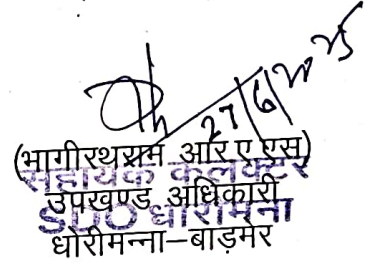 27/6/2025
(भागीरथराम आर.ए.एस)
सहायक कलक्टर
उपखण्ड अधिकारी
SDO धोरीमना
धोरीमन्ना–बाड़मेर